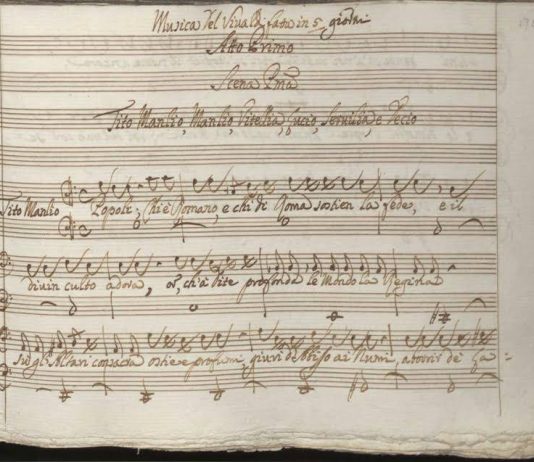 Musica del Vivaldi fatta in 5 giorni
Atto Primo
Scena Pma
Tito Manlio, Manlio, Vitellia, Lucio, Servilia, e Decio
Tito Manlio Popoli, chi è Romano, e chi di Roma sostien la fede, e il
divin culto adora, or, ch'a Dite profonda
su gl'Altari consacra ostie e profumi, giuri di Stigio ai Numi, aborrir de La=